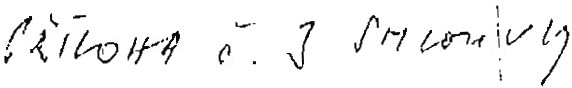 PŘÍLOHA č. 3 SMLOUVY